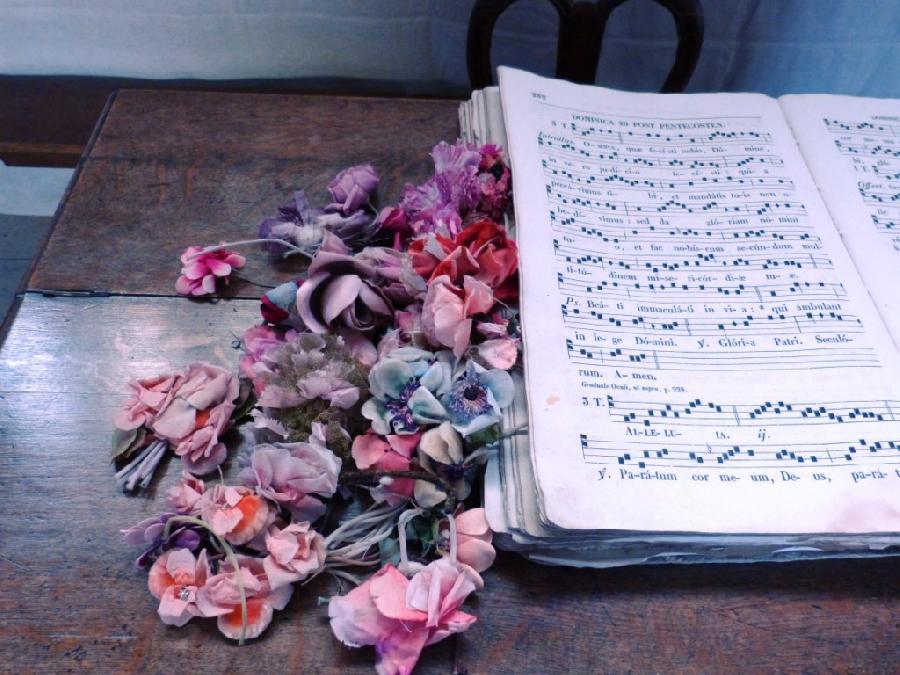 DOMINICA 20 POST PENTECOSTEN.
3 T.
Introitus. O-mnia, quæ fe-cí-sti nobis, Dó- mine,
in ve- ro ju-dí-ci-o fe- cí- sti: qui- a
peccá-vimus ti- bi, et mandátis tu-is non o-
be-dí- vimus: sed da gló-riam nómini
tu- o, et fac no-bís-cum se-cún-dum mul-
ti-tú- dinem mi-se- ri-cór- di-æ tu- æ.
Ps. Beá- ti immaculá-ti in vi- a: qui ambulant
in le- ge Dó-mini. ℣. Glóri-a Patri. Seculó-
rum. A- men.
Graduale Oculi, ut supra, p.
3 T.
AL-LE- LU- IA. ij.
℣. Pa-rá-tum cor me- um, De- us, pa-rá-
Offert.